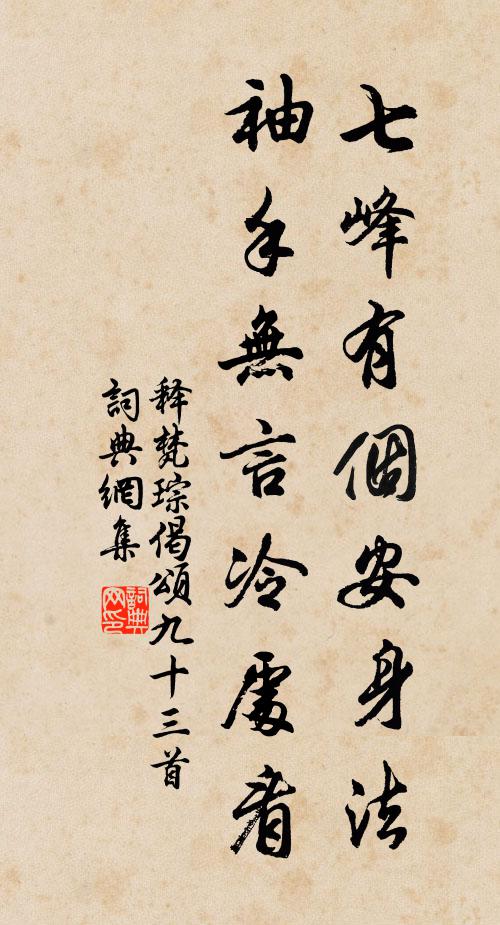 七峰有個安身法
袖手無言冷處看
释梵琮偈頌九十三首
詞典網集
詞典网印